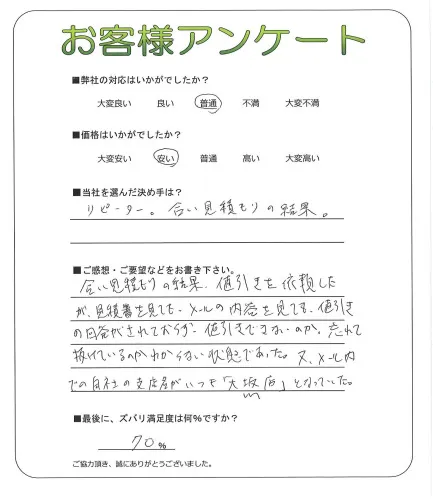 お客様アンケート
■弊社の対応はいかがでしたか?
大変良い 良い 普通 不満 大変不満
■価格はいかがでしたか?
大変安い 安い 普通 高い 大変高い
■当社を選んだ決め手は?
リピーター。合い見積もりの結果。
■ご感想・ご要望などをお書き下さい。
合い見積もりの結果、値引きを依頼した
が、見積書を見ても、メールの内容を見ても、値引き
の回答がされておらず、値引きできないのか、忘れて
抜けているのかわからない状態であった。又、メール内
での自社の支店屋がいつも「大坂店」となっていた。
■最後に、ズバリ満足度は何%ですか?
70%
ご協力頂き、誠にありがとうございました。